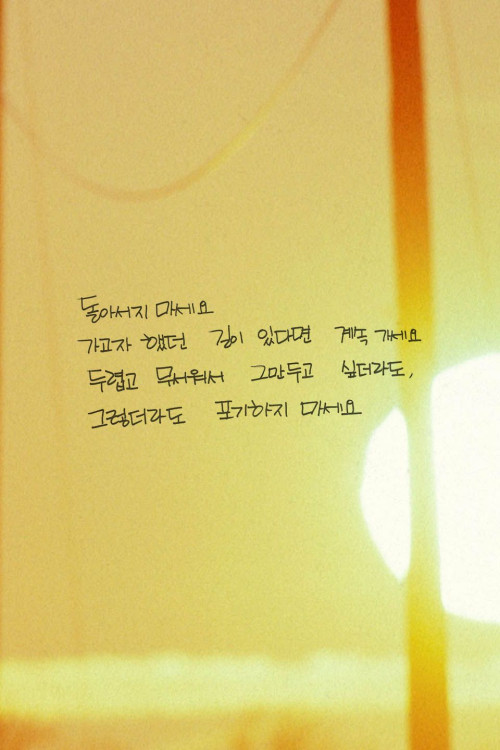 돌아서지 마세요
가고자 했던 길이 있다면 계속 가세요
두렵고 무서워서 그만두고 싶더라도,
그렇더라도 포기하지 마세요